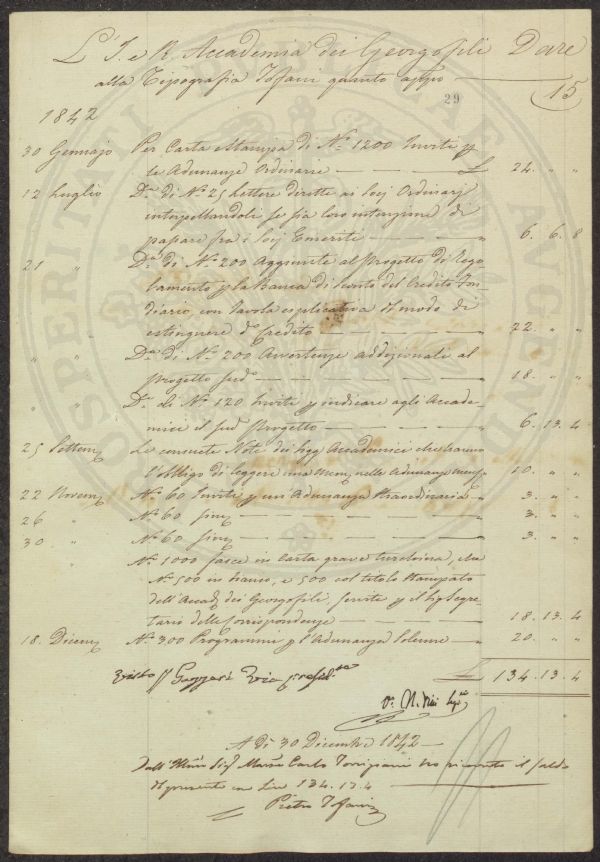 L'I. e R. Accademia dei Georgofili Dare
alla Tipografia Tofani quanto appo
29
15
1842
30 Gennajo Per Carta e Stampa di No. 1200 Inviti p
le Adunanze Ordinarie £ 24. " "
12 Luglio Da. di No. 25 Lettere dirette ai Socj Ordinarj
interpellandoli se sia loro intenzione di
passare fra i Socj Emeriti " 6. 6. 8
21 " Da. di No. 200 Aggiunte al Progetto di Rego-
lamento p la Banca di Sconto del Credito Fon-
diario, con Tavola esplicativa il modo di
estinguere do. Credito " 22. " "
" " Da. di No. 200 Avvertenze addizionali al
Progetto sudo. " 18. " "
" " Da. di No. 120 Inviti p indicare agli Accade-
mici il sudo. Progetto " 6. 13. 4
25 Settem Le consuete Note dei Sigg Accademici che hanno
l'obbligo di leggere una Mem nelle Adunanze Mens 10. " "
22 Novem No. 60 Inviti p un'Adunanza straordinaria " 3. " "
26 " No. 60 simi " 3. " "
30 " No. 60 simi " 3. " "
No. 1000 fasce in Carta grave turchina, che
No. 500 in bianco, e 500 col titolo stampato
dell'Accad dei Georgofili, servite p il Sig Segre-
tario delle Corrispondenze " 18. 13. 4
18. Dicem No. 300 Programmi p l'Adunanza Solenne " 20. " "
£ 134. 13. 4
Visto
A dì 30 Dicembre 1842
Dall' Illmo Sigr March Carlo Torrigiani ho ricevuto il saldo
del presente in Lire 134. 13. 4
Pietro Tofani
PROSPERITATI PUBLICAE AUGENDAE